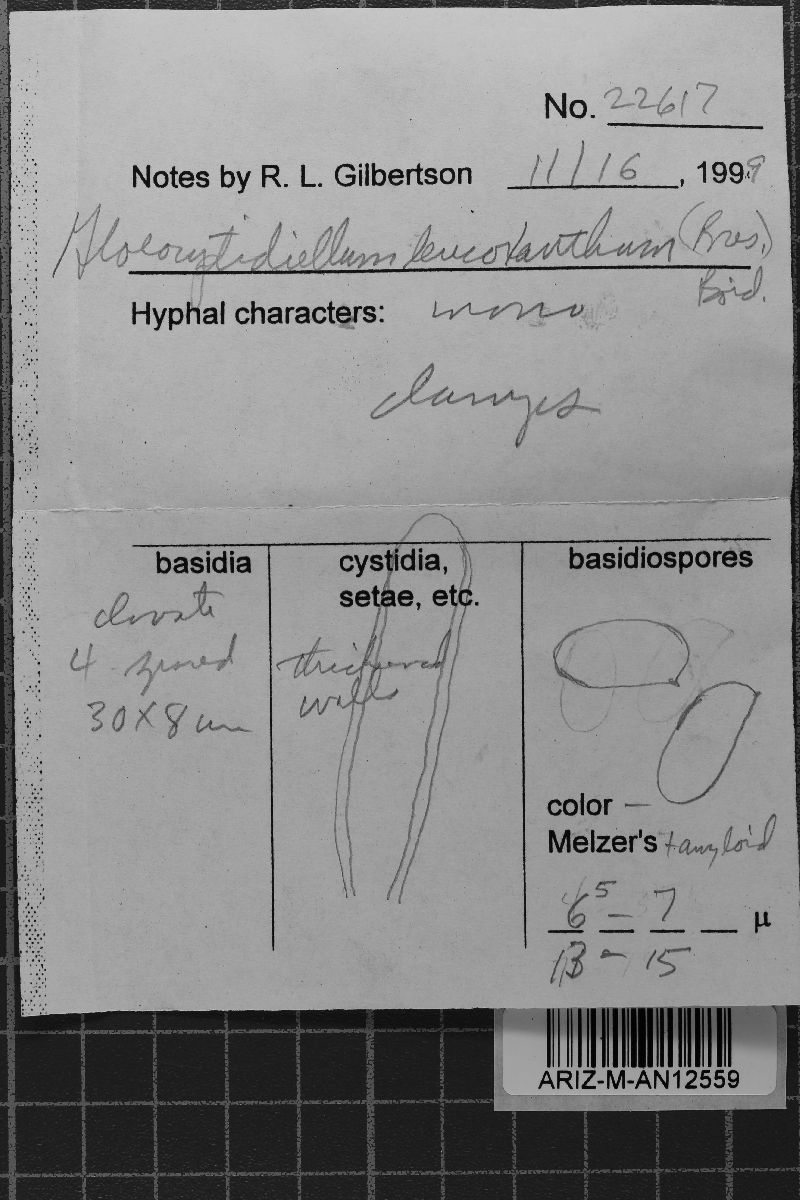 No. 22617
Notes by R. L. Gilbertson 11/16, 1999
Gloeocystidiellum leucoxanthum (Bres.)
Boid.
Hyphal characters: mono
clamps
basidia
clavate
4 spored
30 X 8 um
cystidia,
setae, etc.
thickened
walls
basidiospores
color —
Melzer's + amyloid
6 5 – 7 μ
13 - 15
ARIZ-M-AN12559